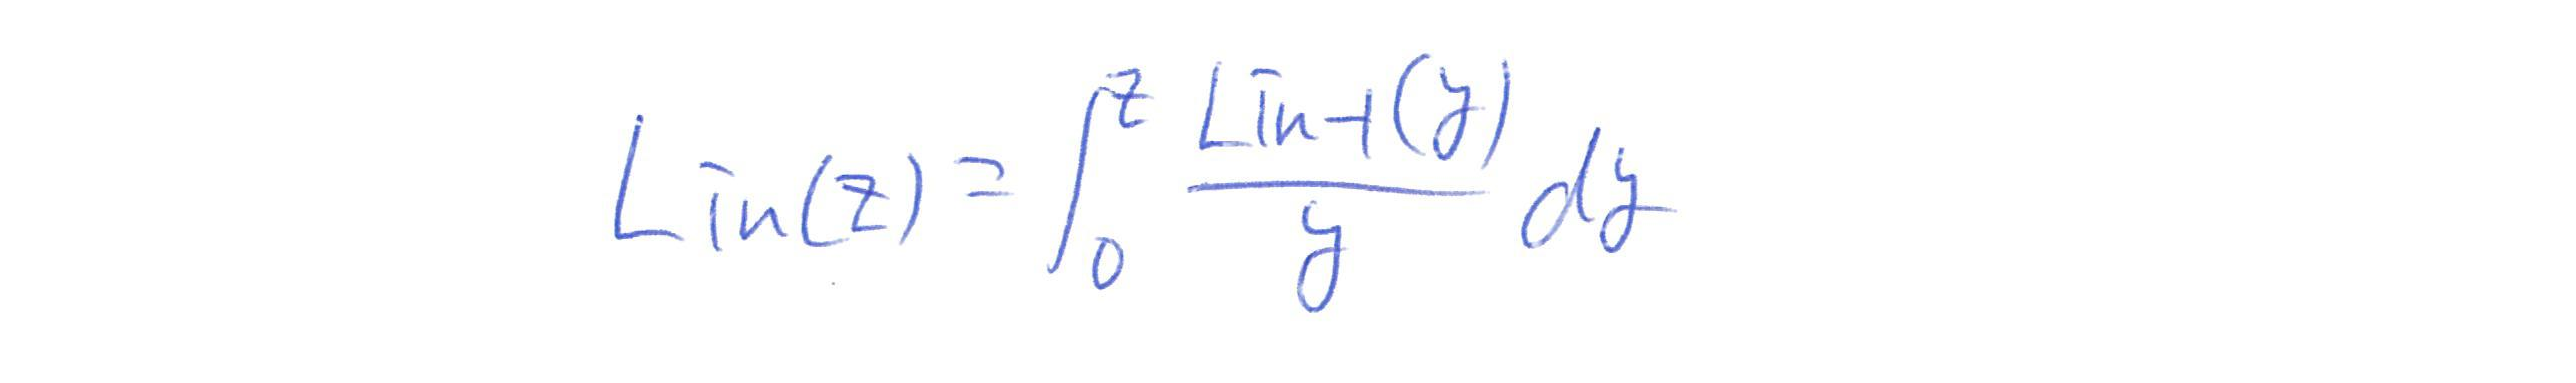 Lin(z) = ∫_0^z \frac{Lin-1(y)}{y} dy